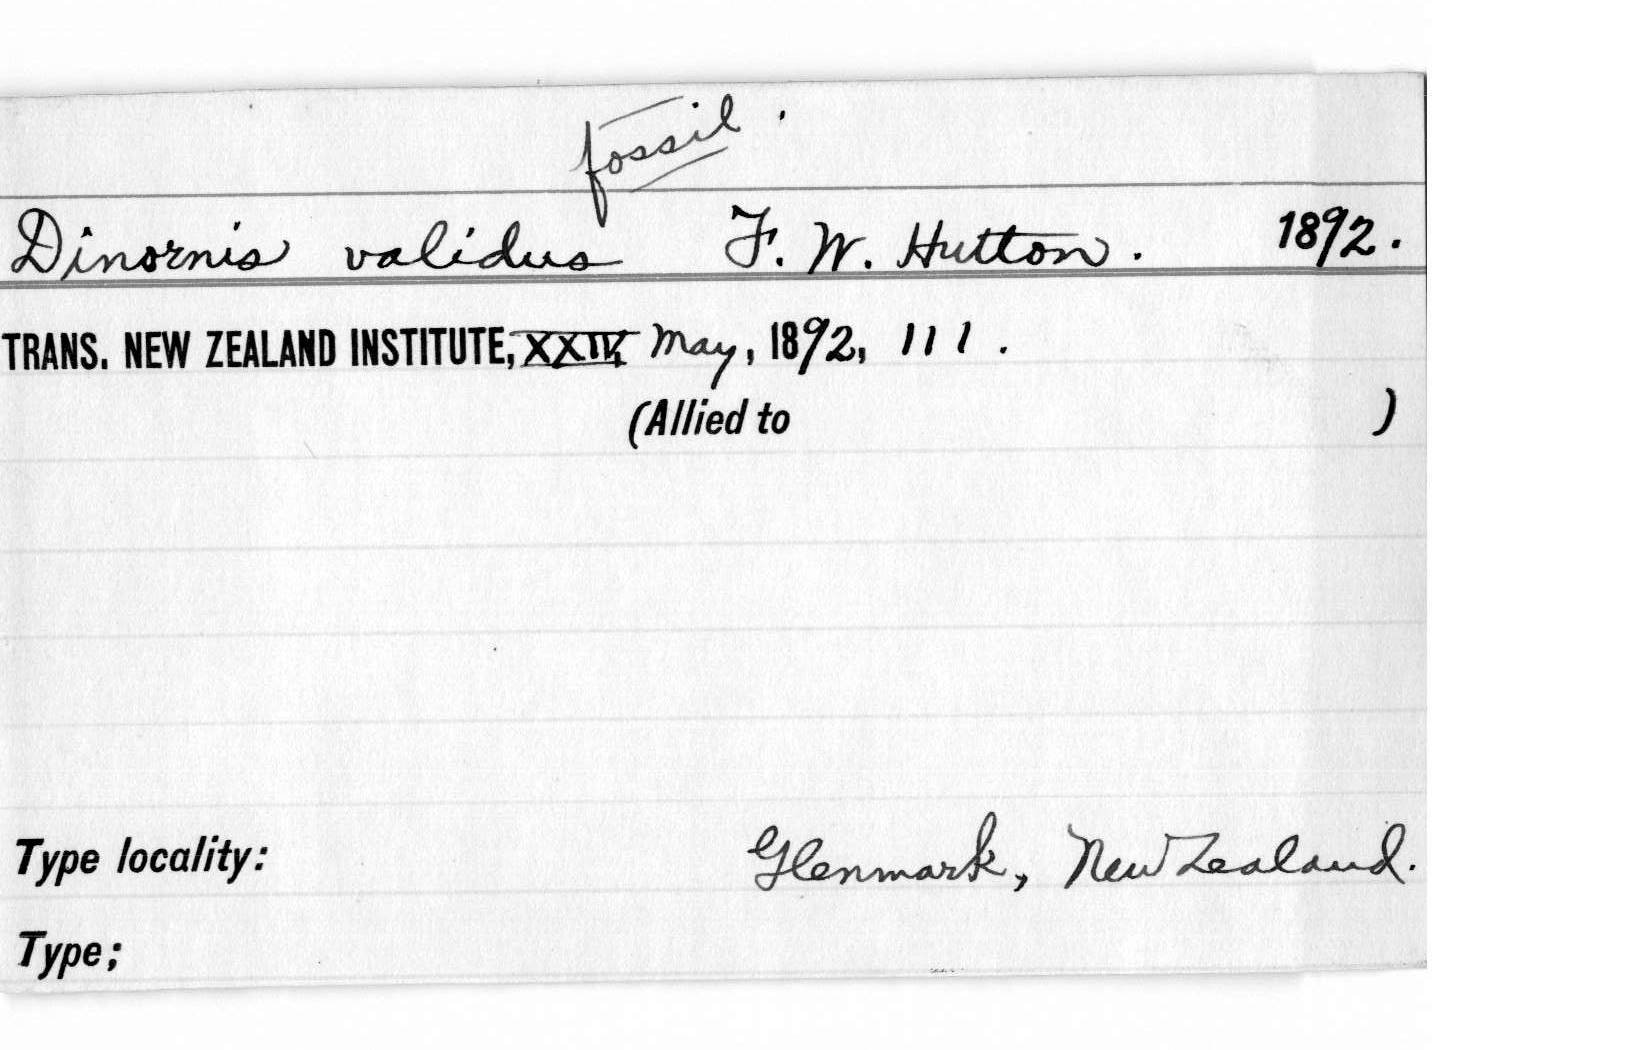 fossil.
Dinornis validus F. W. Hutton. 1892.
TRANS. NEW ZEALAND INSTITUTE, XXIV, May, 1892, 111.
(Allied to )
Type locality: Glenmark, New Zealand.
Type;